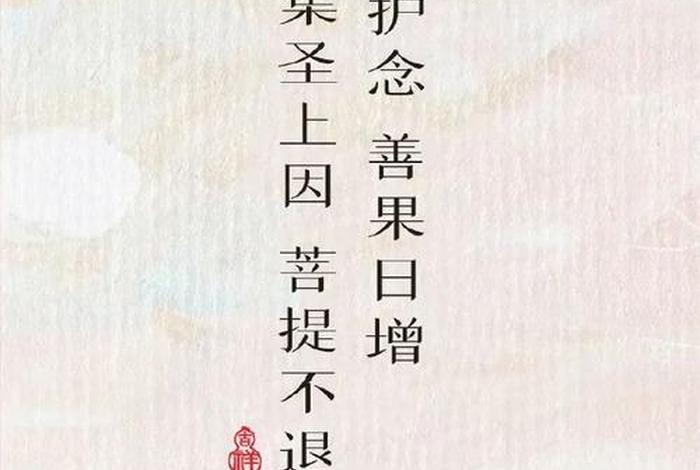 护念 善果日增
集圣上因 菩提不退
吉祥